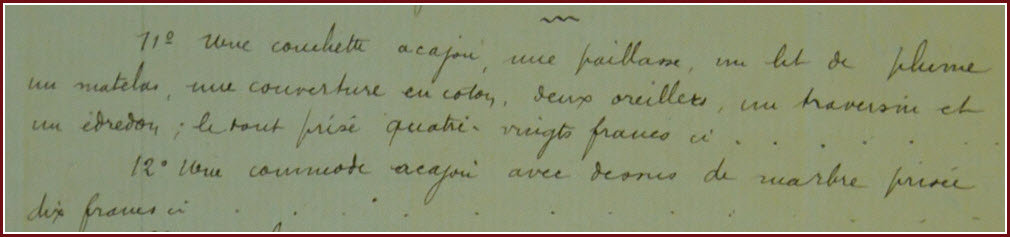 11º Une couchette acajou, une paillasse, un lit de plume
un matelas, une couverture en coton, deux oreillers, un traversin et
un édredon ; le tout prisé quatre-vingts francs ci . . . . . .
12º Une commode acajou avec dessus de marbre prisée
dix francs ci . . . . . . . . . . .